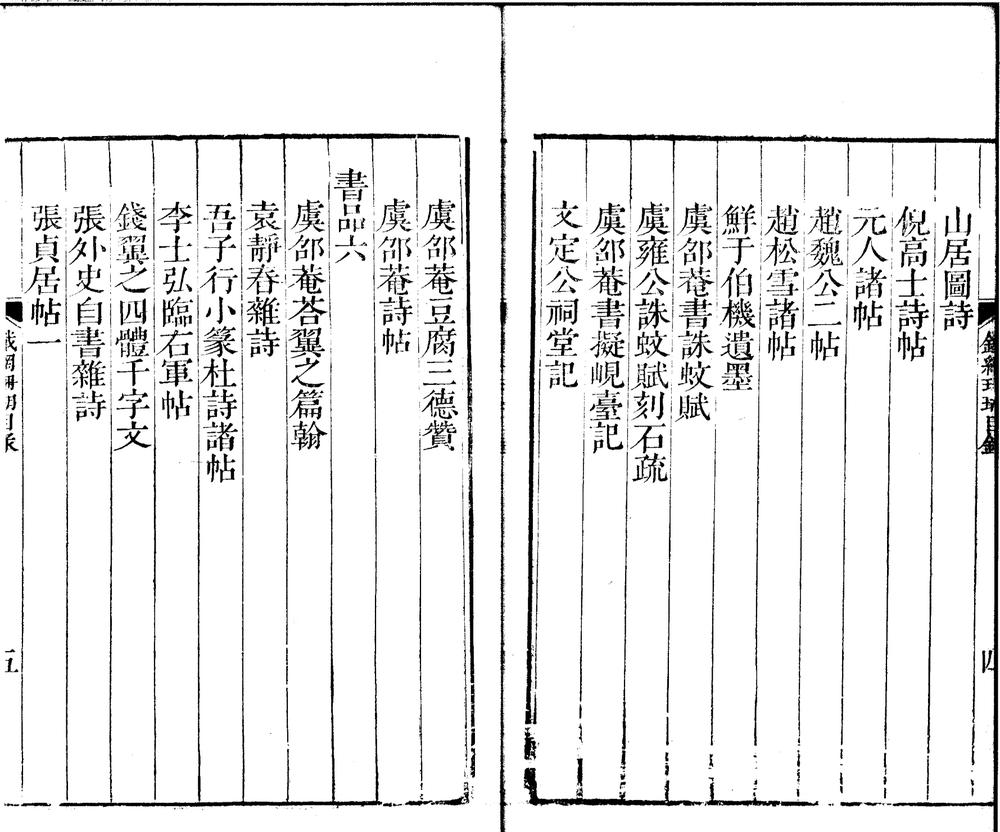 山居圖詩
倪高士詩帖
元人諸帖
趙魏公二帖
趙松雪諸帖
鮮于伯機遺墨
虞邵菴書誅蚊賦
虞雍公誅蚊賦刻石疏
虞邵菴書擬峴臺記
文定公祠堂記
四
虞邵菴豆腐三德贊
虞邵菴詩帖
書品六
虞邵菴荅翼之篇翰
袁靜春雜詩
吾子行小篆杜詩諸帖
李士弘臨右軍帖
錢翼之四體千字文
張外史自書雜詩
張貞居帖一
五